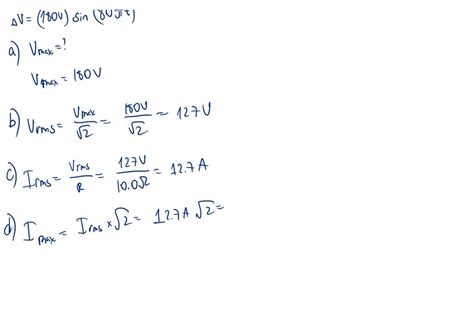 ΔV = (180V) sin (8Vπt)
a) Vmax = ?
Vmax = 180V
b) Vrms = Vmax/√2 = 180V/√2 = 127V
c) Irms = Vrms/R = 127V/10.0Ω = 12.7A
d) Imax = Irms × √2 = 12.7A √2 =